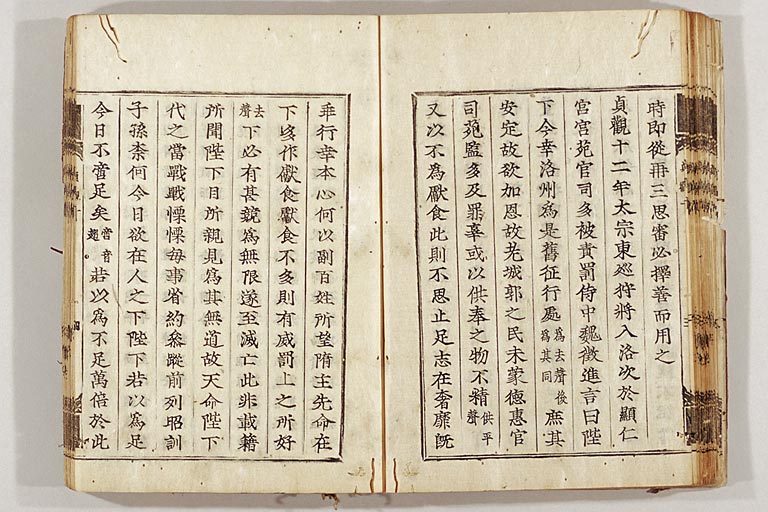 時即從再三思審必擇善而用之
貞觀十二年太宗東廵狩將入洛次於顯仁
宮宮苑官司多被責罰侍中魏徵進言曰陛
下今幸洛州爲是舊征行處爲去聲後爲其同庶其
安定故欲加恩故老城郭之民未蒙德惠官
司苑監多及罪辜或以供奉之物不精供平聲
又以不爲獻食此則不思止足志在奢靡旣
乖行幸本心何以副百姓所望隋主先命在
下多作獻食獻食不多則有威罰上之所好
去聲下必有甚競爲無限遂至滅亡此非載籍
所聞陛下目所親見爲其無道故天命陛下
代之當戰戰慄慄每事省約叅蹤前列昭訓
子孫柰何今日欲在人之下陛下若以爲足
今日不啻足矣啻音翅若以爲不足萬倍於此